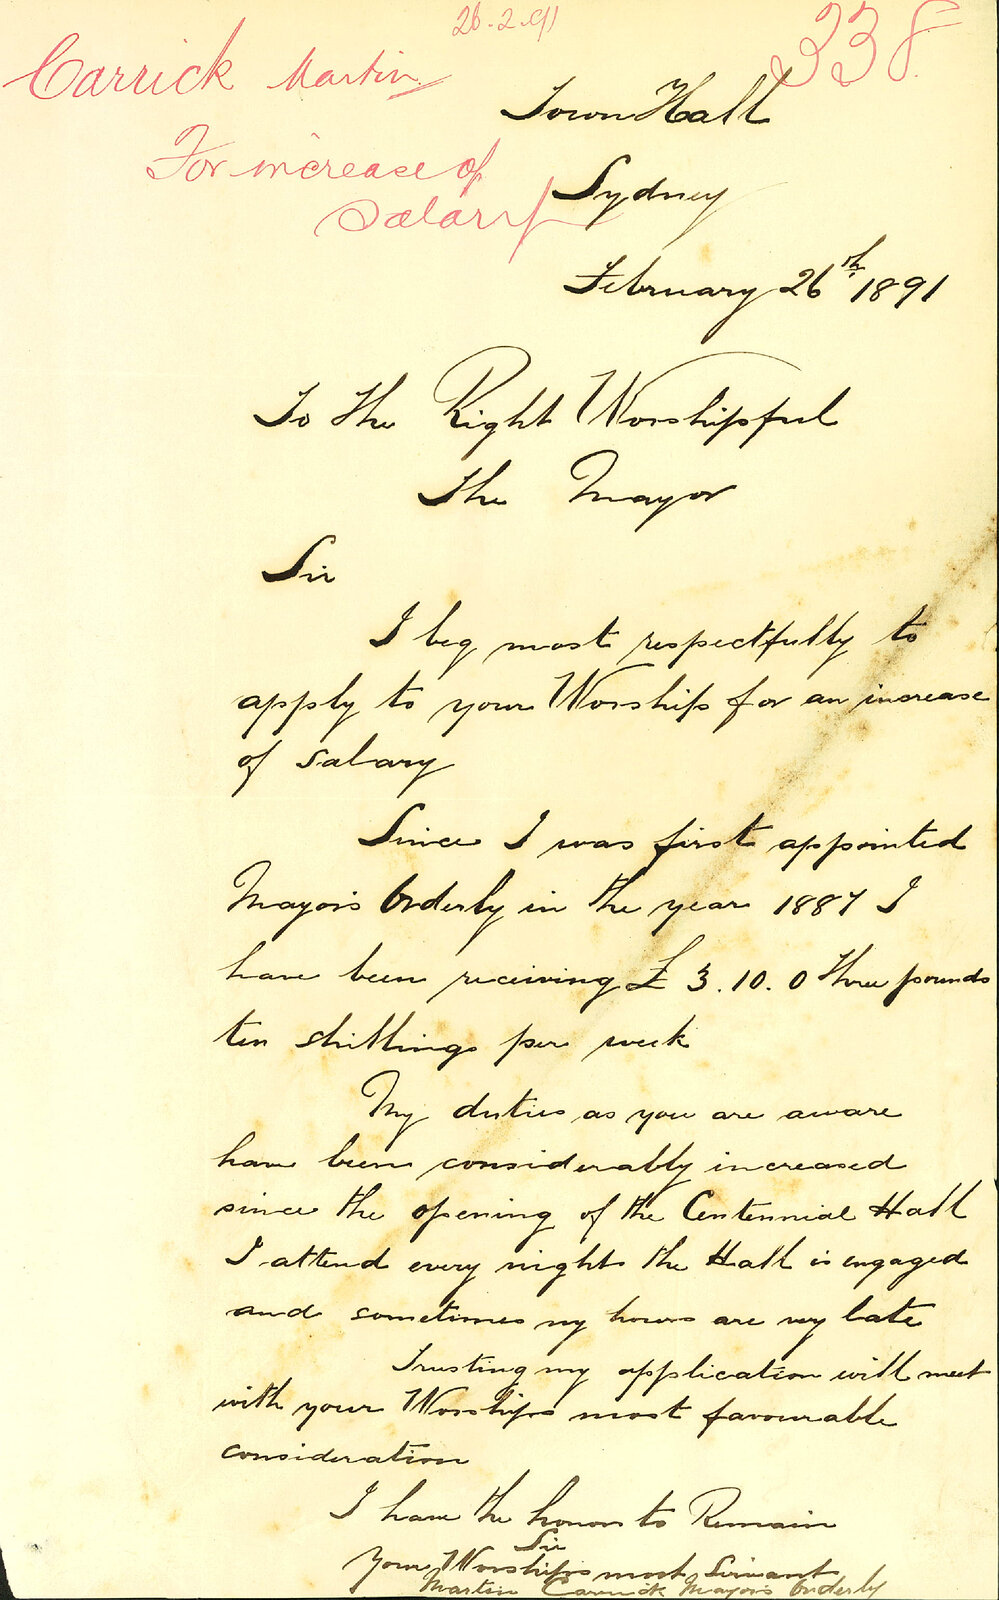 26.2.91
338
Carrick Martin
For increase of
Salary
Town Hall
Sydney
February 26th 1891
To The Right Worshipful
The Mayor
Sir
I beg most respectfully to
apply to your Worship for an increase
of salary
Since I was first appointed
Mayors Orderly in the year 1887 I
have been receiving £ 3.10.0 three pounds
ten shillings per week
My duties as you are aware
have been considerably increased
since the opening of the Centennial Hall
I attend every night the Hall is engaged
and sometimes my hours are very late
Trusting my application will meet
with your Worships most favourable
consideration
I have the honor to Remain
Sir
Your Worships most Servant
Martin Carrick Mayors Orderly